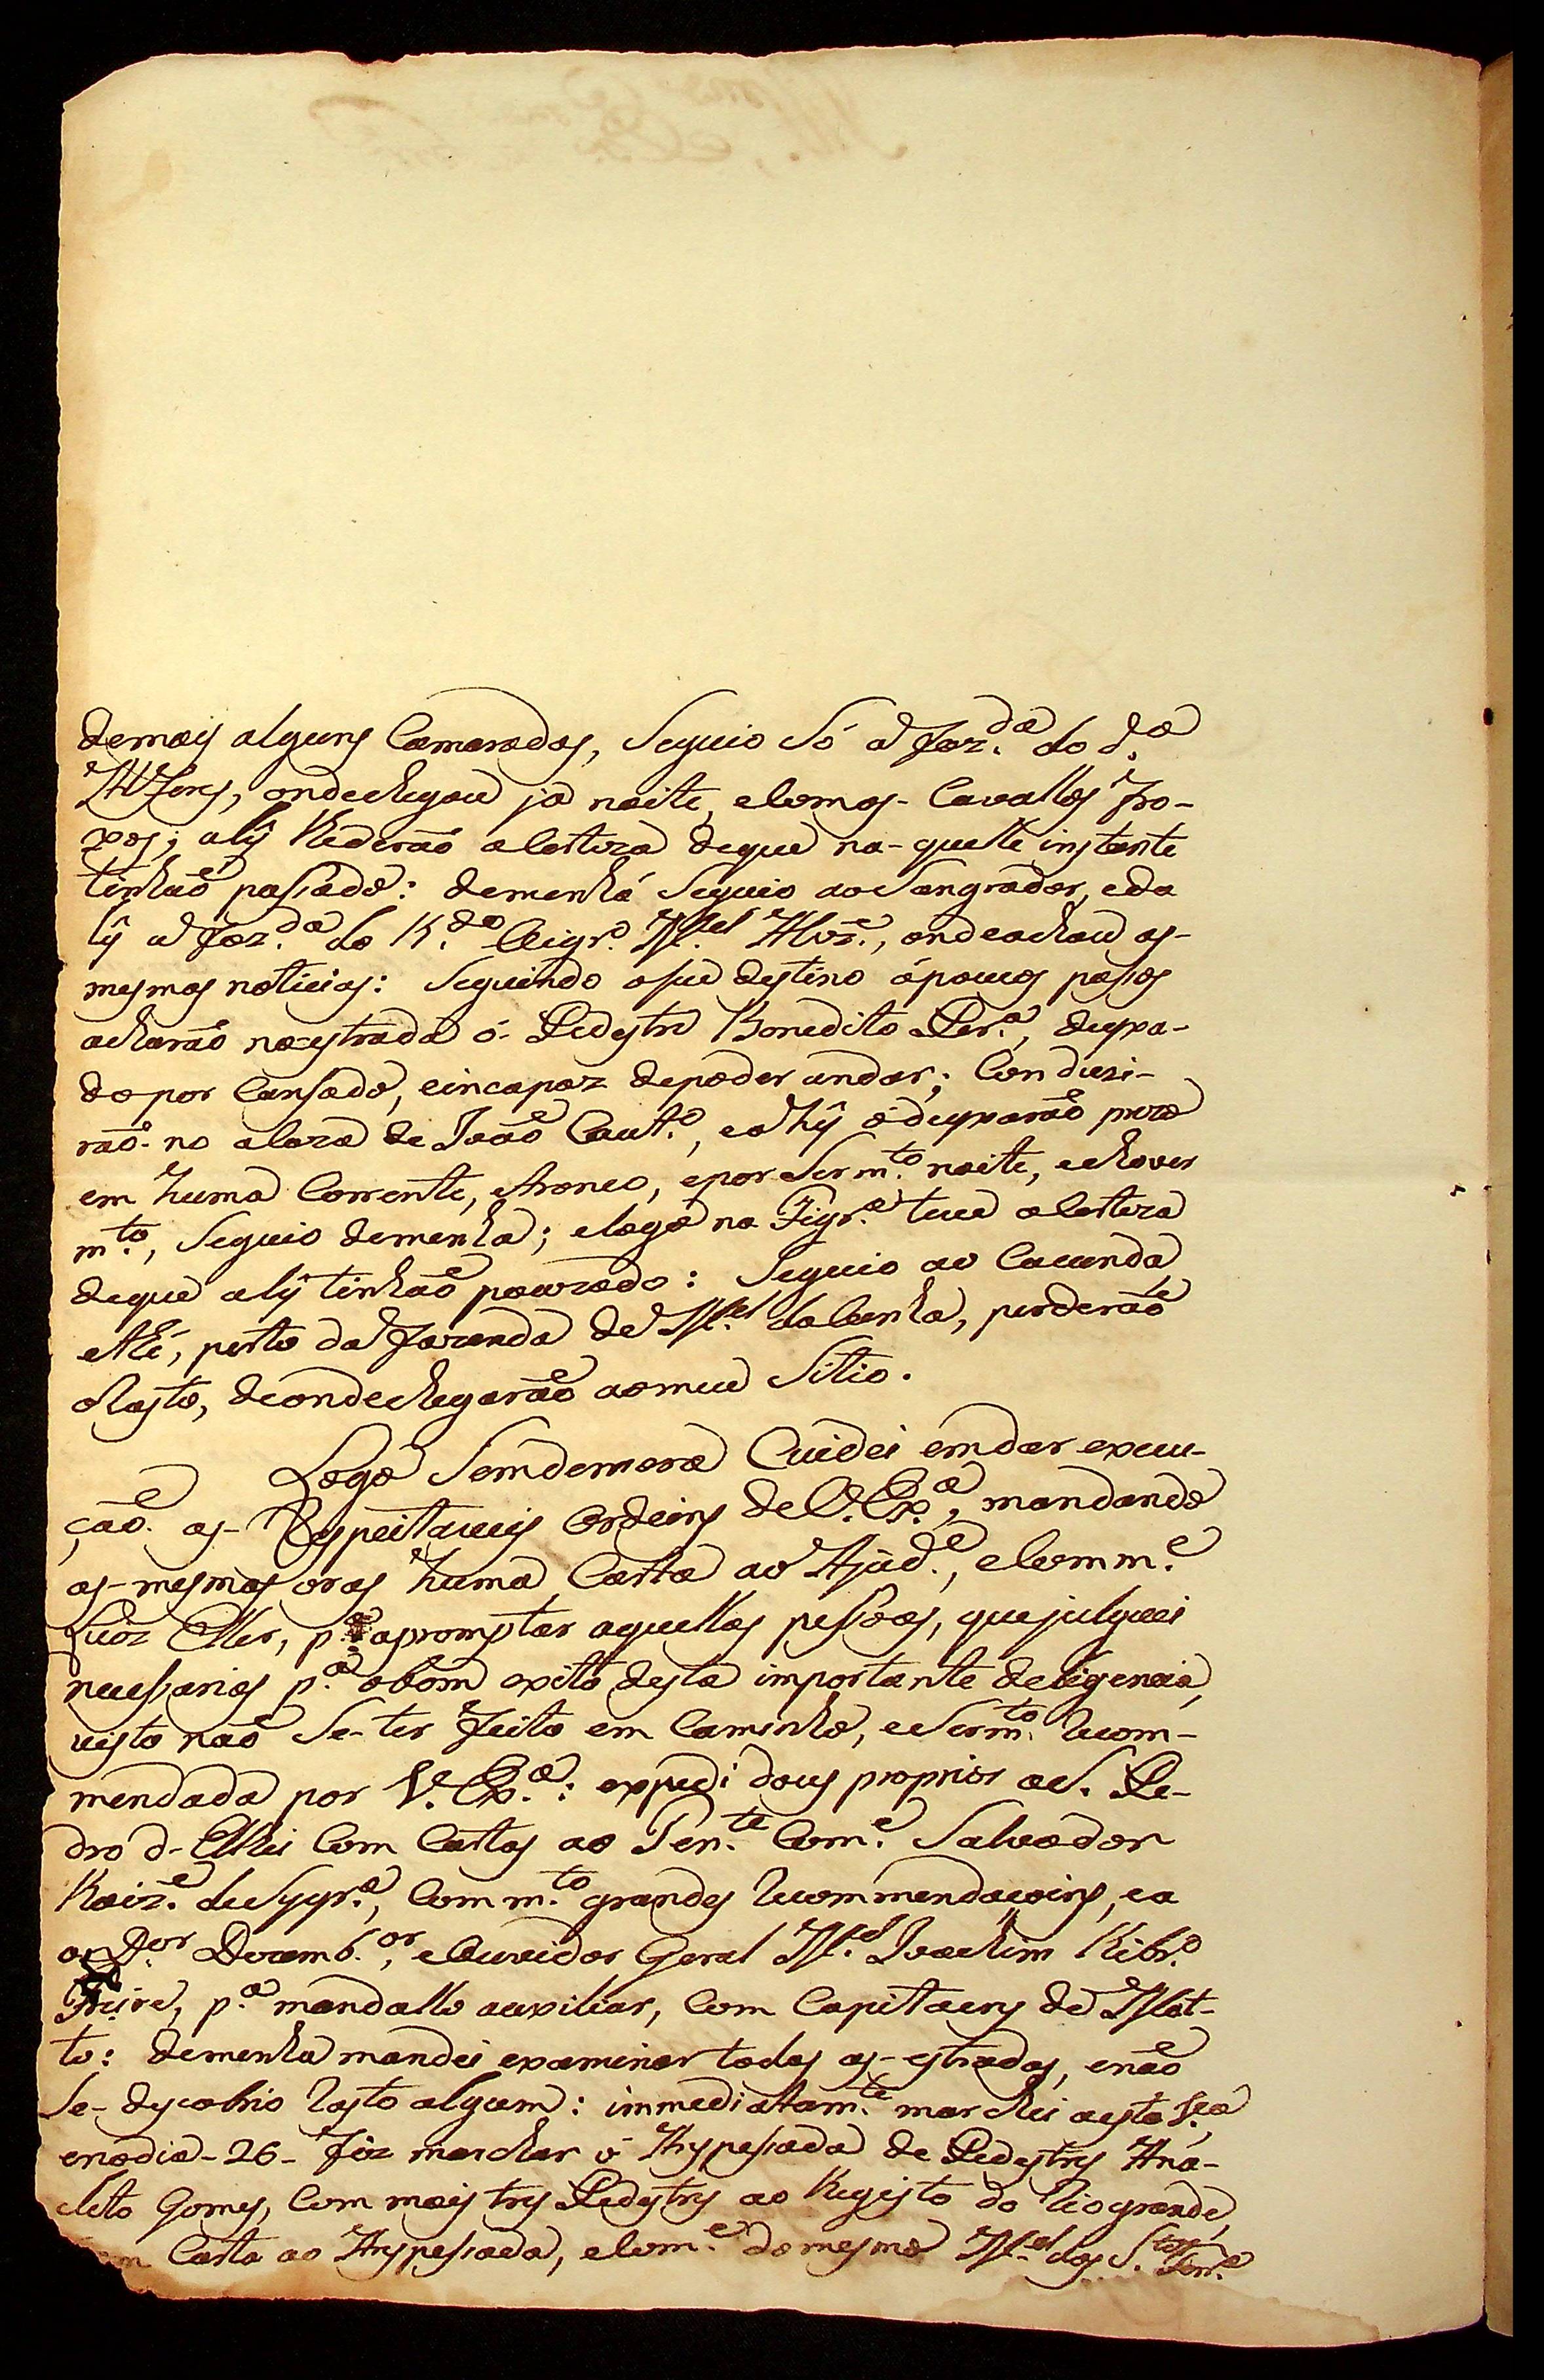 demais alguns Camaradas, Seguio Só a Faz.da do d.o
Alferes, onde chegou ja noite, e Com os- Cavallos fro-
xos; aly lhe derão a Certeza de que na-quelle instante
tinhaõ passado: de menhá Seguio ao Sangrador, e da
ly a Faz.da do R.do Vigr.o M.el Alvz.e, onde achou as-
mesmas noticias: Seguindo o seu destino á poucos passos
acharaõ na estrada ó- Pedestre Benedito Per.a, deixa-
do por Cansado, e incapaz de poder andar; Conduzi-
rão-no a Caza de Joaõ Caut.o, e ahy o deixaraõ prezo
em huma Corrente, e tronco, e por Ser m.to noite, e chover
m.to, Seguio de menha; e logo na Figr.a teve a Certeza
de que aly tinhaõ pouzado: Seguio ao Cacunda,
e thé, perto da Fazenda de M.el da Cunha, perderaõ
o Rasto, de onde chegaraõ ao meu Sitio.
Logo Sem demora Cuidei em dar execu-
çaõ. as- Respeitaveis Ordeins de V. Ex.a, mandando
as- mesmas oras huma Carta ao Ajud.e, e Comm.e
Luiz Eller, p.a apromptar aquellas pessoas, que julguei
necessarias p.a o bom exito desta importante deligencia,
visto naõ Se- ter feito em Caminho, e Ser m.to recom-
mendada por V. Ex.a: expedi dous proprios a S. Pe-
dro d- ElRei Com Cartas ao Ten.te Com.e Salvador
Roiz.e de Syqr.a, Com m.to grandes recommendaçoins, e a
o D.or Dezemb.or, e Ouvidor Geral M.el Joachim Ribr.o
Freire, p.a mandallo auxiliar, Com Capitaens de Mat-
to: de menha mandei examinar todas as- estradas, e naõ
Se- descobrio rasto algum: immediatam.te marchei a esta V.a
e no dia- 26- fiz marchar o Anspessada de Pedestres Ana-
cleto Gomes, Com mais tres Pedestres ao Registo do Rio grande,
Carta ao Anspessada, e Com.e do mesmo M.el dos S.